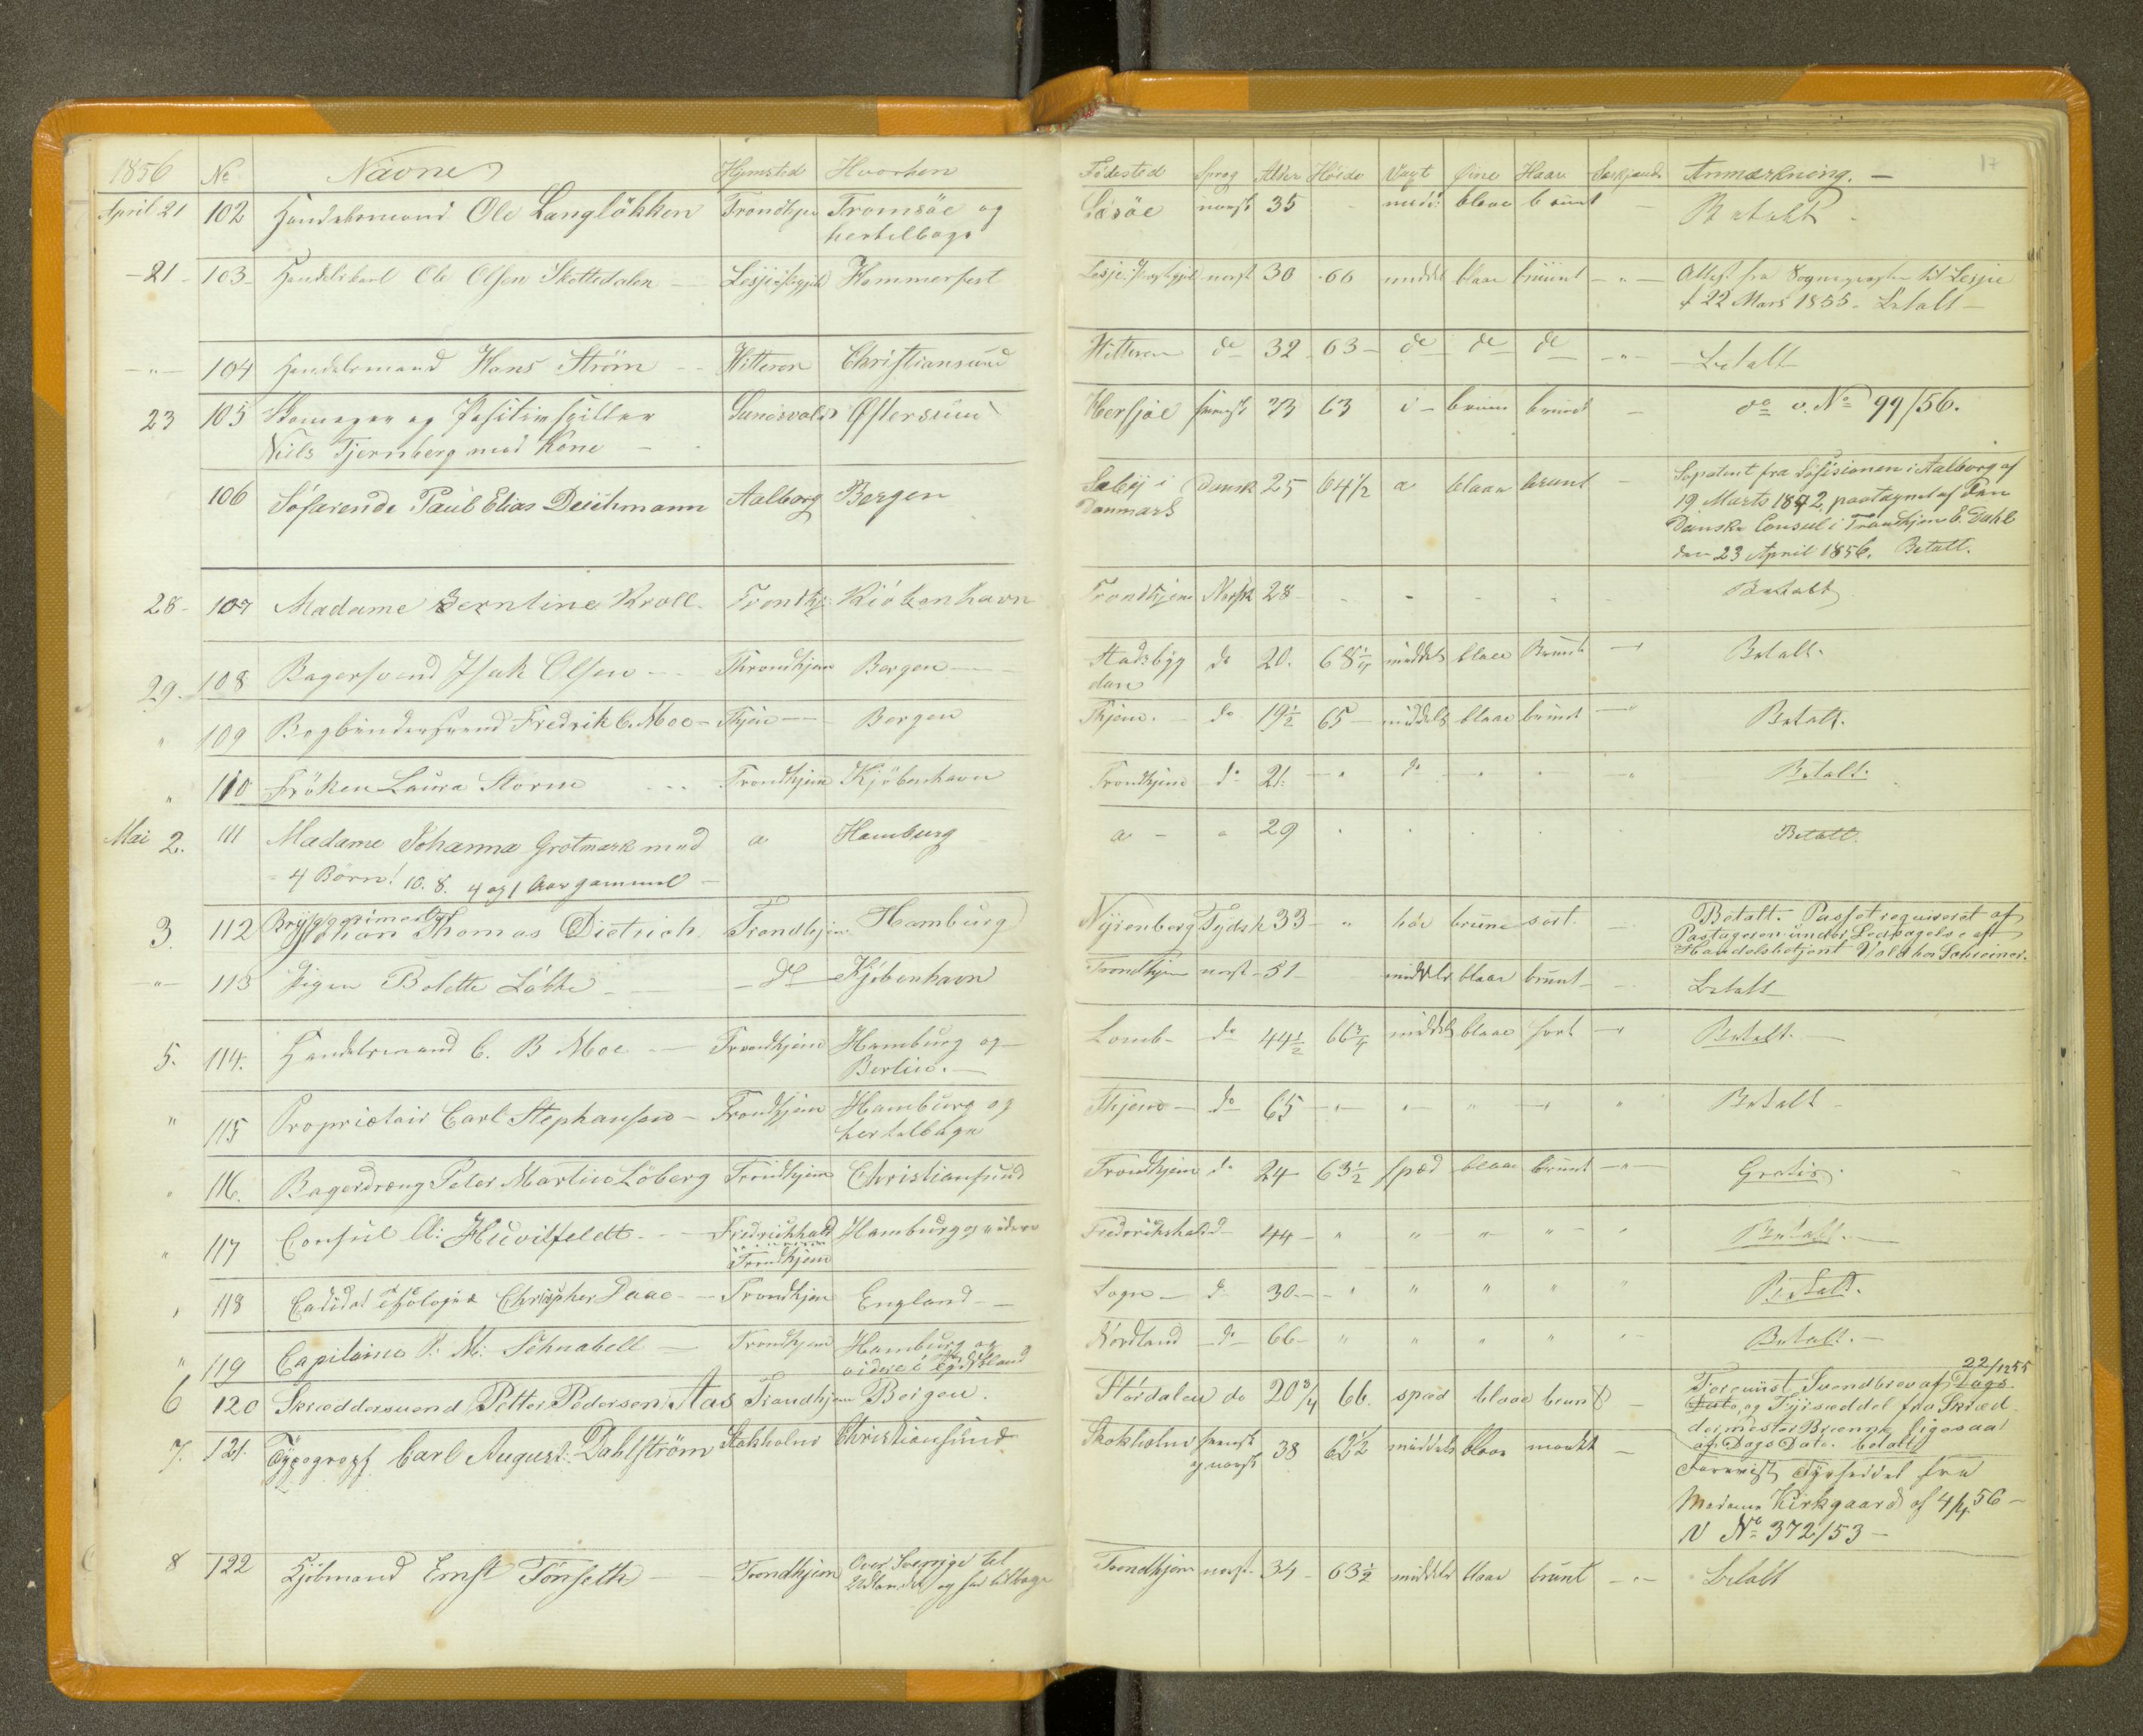 1856 No Navne Hjemsted Hvorhen Fødested Sprog Alder Høide Vext Øine Haar Anmærkning. — 17
April 21 102 Handelsmand Ole Langløkken Trondhjem Tromsöe og norsk 35 - midd: blaae brunt - Betalt -
hertilbage
- 21 - 103 - Handelskarl Ole Olsen Skottedalen - Hammerfest norsk 30 - 66 middel blaae bruunt - " - Attest fra Sognepræsten til Lesje
22 Mars 1855 - Betalt -
- " - 104 Handelsmand Hans Ström - - Hitteren Christiansund Hitteren do 32 - 63 - do do do - " - - Betalt -
23 105 og Positivspiller Östersund svensk 63 brune bruunt - do v. No 99/56.
Niels Tjernberg med Kone -
106 Söfarende Paul Elias Deichmann Aalborg Bergen Sæby i dansk 25 64 1/2 a blaae brunt - fra i Aalborg af
Danmark 19 Marts 1842, paategnet af den
Danske Consul i Trondhjem C. Dahl
den 23 April 1856. Betalt.
28 - 107 Madame Berntine Kroll. Trondhj: Kiöbenhavn Trondhjem Norsk 28 - - - - Betalt
29. 108 Bagersvend Isak Olsen - - Throndhjem Bergen - Stadsbyg do 20. 68 1/4 middels blaae Bruunt - Betalt.
den
" 109 Bogbindersvend Fredrik C. Moe - Thjem - Bergen Thjem. - do 19 1/2 65 - middels blaae bruunt - Betalt.
" 110 Fröken Laura Storm - - - Trondhjem Kjöbenhavn Trondhjem do 21. - " do - " " - " Betalt.
Mai 2. 111 Madame Johanna Grotmark med a Hamburg a - " 29 Betalt.
4 Börn! 10. 8. 4 og 1 Aar gammel -
3. 112 Johan Thomas Dietrich Trondhjem Hamburg Nyrenberg Tydsk 33 - " höi brune sort. Betalt. Passet requireret af
Handelsbetjent
- " - 113 Pigen Bolette Lökke - - do - Kjöbenhavn Trondhjem norsk - 51 - middels blaae brunt - Betalt
5. 114. Handelsmand C. B Moe - Trondhjem Hamburg og Lomb - do 44 1/2 66 3/4 middels blaae sort - Betalt. -
Berlin. -
" 115 Proprietair Carl Stephansen - Trondhjem Hamburg og Thjem - do 65 - " - " - " - " " Betalt -
hertilbage
" 116. Bagerdreng Peter Martin Löberg Trondhjem Christiansund Trondhjem do 24 - 63 1/2 spæd blaae bruunt - " - Gratis.
" 117 Consul A: Huvitfeldt - - Fredrickhald Hamburg og videre Frederikshald 44 - " " - " - " - " Betalt. -
Trondhjem
" 118 Christopher Daae - - Trondhjem England - - Sogn - do 30. - - " " " " " Betalt.
" 119 Capitaine P. M: Schnabell - Trondhjem Hamburg og Nordland do 66 - " " " " " - Betalt. -
videre i
6 120 Skræddersvend Petter Pedersen Aas Trondhjem Bergen. Stördalen do 20 3/4 66. spæd blaae brunt - Foreviist Svendbrev af Dags 22/1255
Dato, og Hyresæddel fra Skræd-
dermester ligesaa
af Dags Dato. betalt
7. 121. Typograph Carl August Dahlström Stokholm Christiansund Stokholm svensk 38 62 1/2 middels blaae mørkt - Forevist fra
og norsk Madame Kirkgaard af 4/4 56 -
N No 372/53 -
8 122 Kjöbmand Ernst Tönseth - Trondhjem Over Sverrige til Trondhjem norsk - 34 - 63 1/2 middels blaae brunt - " - Betalt
Udlandet og tilbage